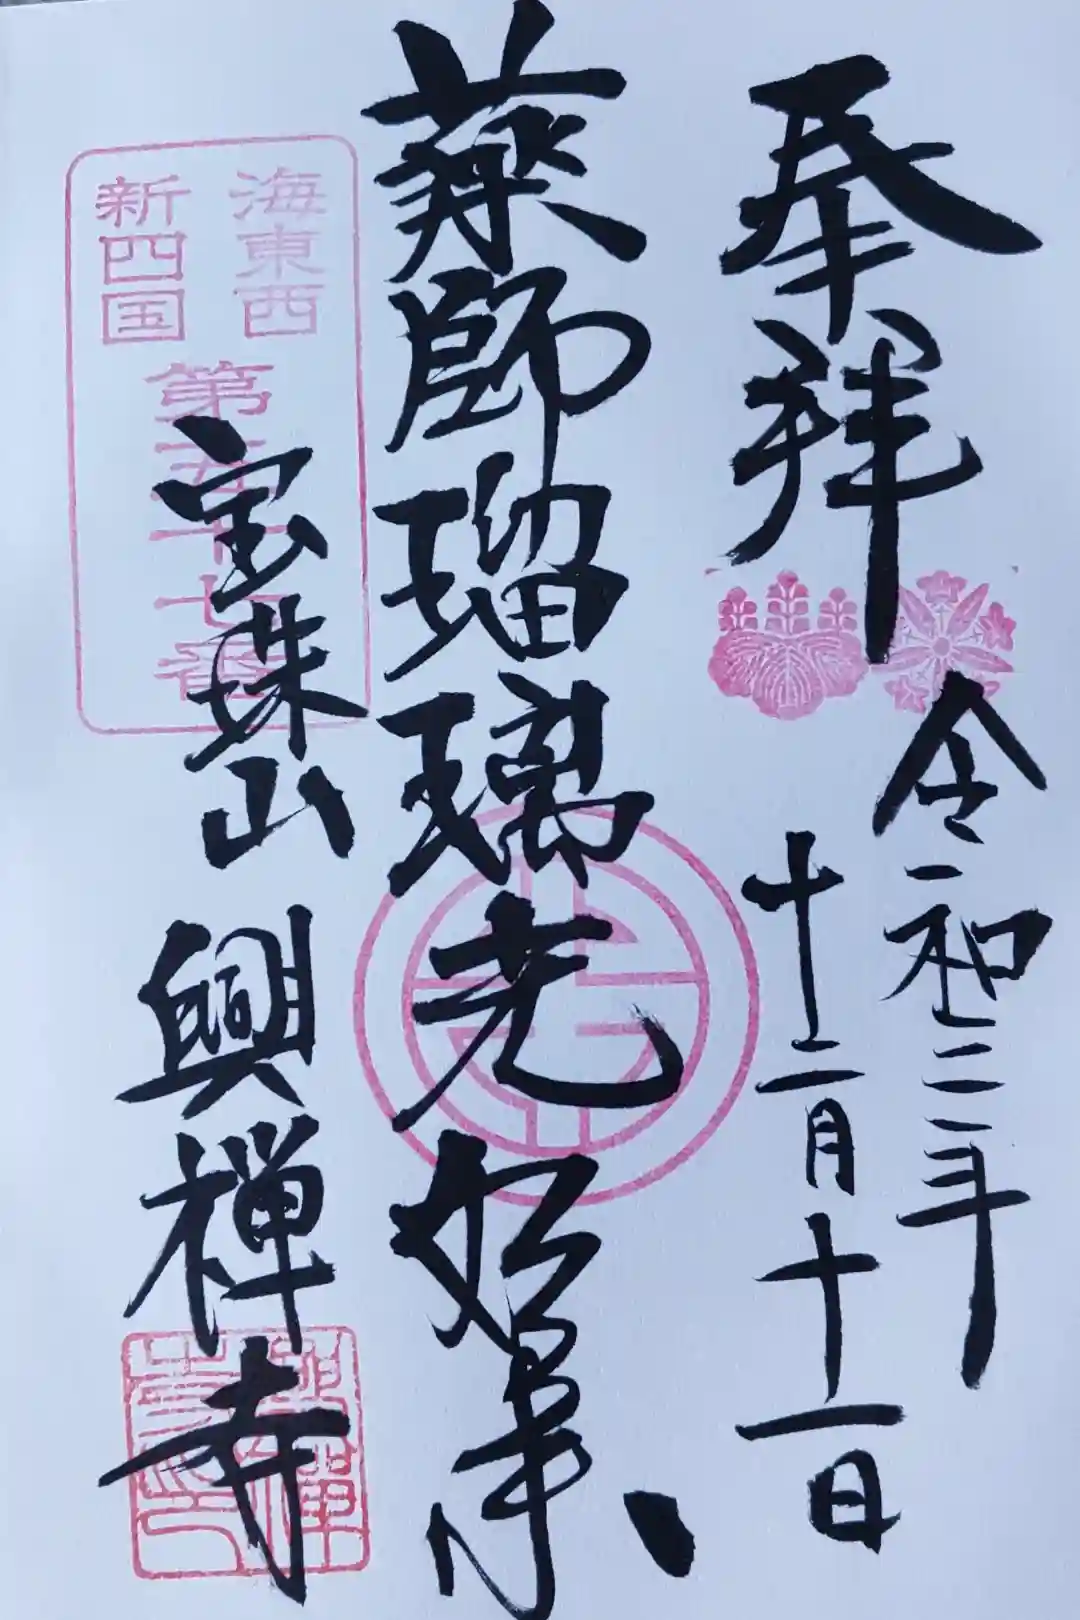 奉拝
令和二年
十二月十一日
薬師瑠璃光如来
海東西
新四国
第五十七番
宝珠山
興禅寺